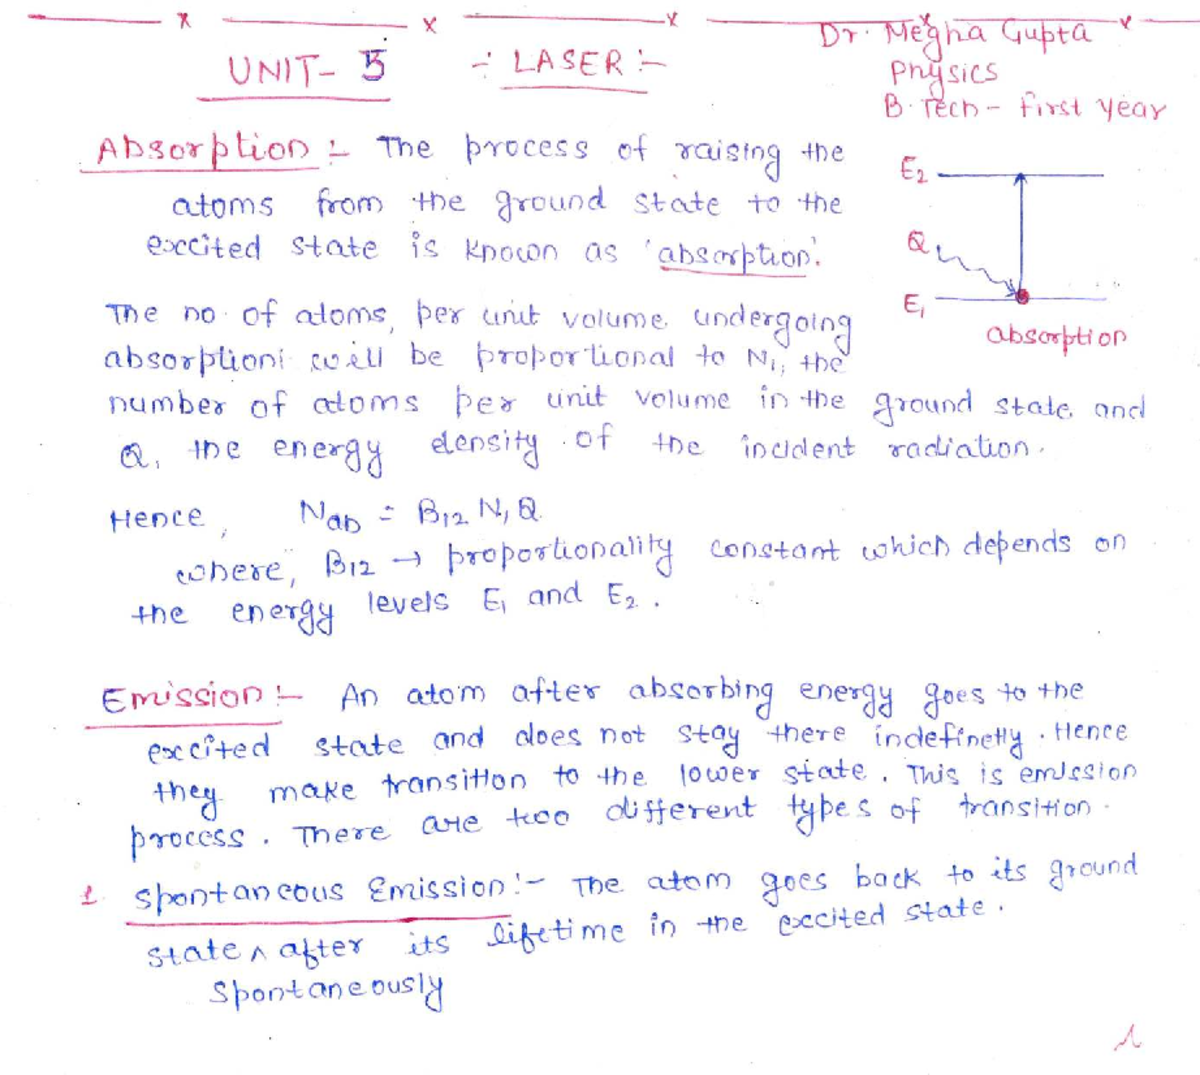 Dr. Megha Gupta
UNIT- 5 -: LASER :-
Physics
B.Tech - first year
Absorption :- The process of raising the
atoms from the ground state to the
excited state is known as 'absorption'.
E2
Q
E1
absorption
The no. of atoms, per unit volume undergoing
absorption will be proportional to N1, the
number of atoms per unit volume in the ground state and
Q, the energy density of the incident radiation.
Hence, Nab = B12 N1 Q
where, B12 → proportionality constant which depends on
the energy levels E1 and E2.
Emission :- An atom after absorbing energy goes to the
excited state and does not stay there indefinetly. Hence
they make transition to the lower state. This is emission
process. There are two different types of transition.
1. Spontaneous Emission :- The atom goes back to its ground
state ^ after its lifetime in the excited state.
Spontaneously